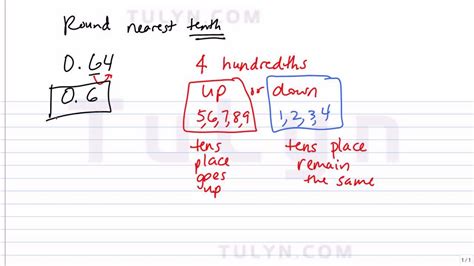 TULYN.COM
Round nearest tenth
0.64
0.6
4 hundredths
up or down
5,6,7,8,9
1,2,3,4
tens
place
goes
up
tens place
remain
the same
Tulyn
TULYN.COM
1/1